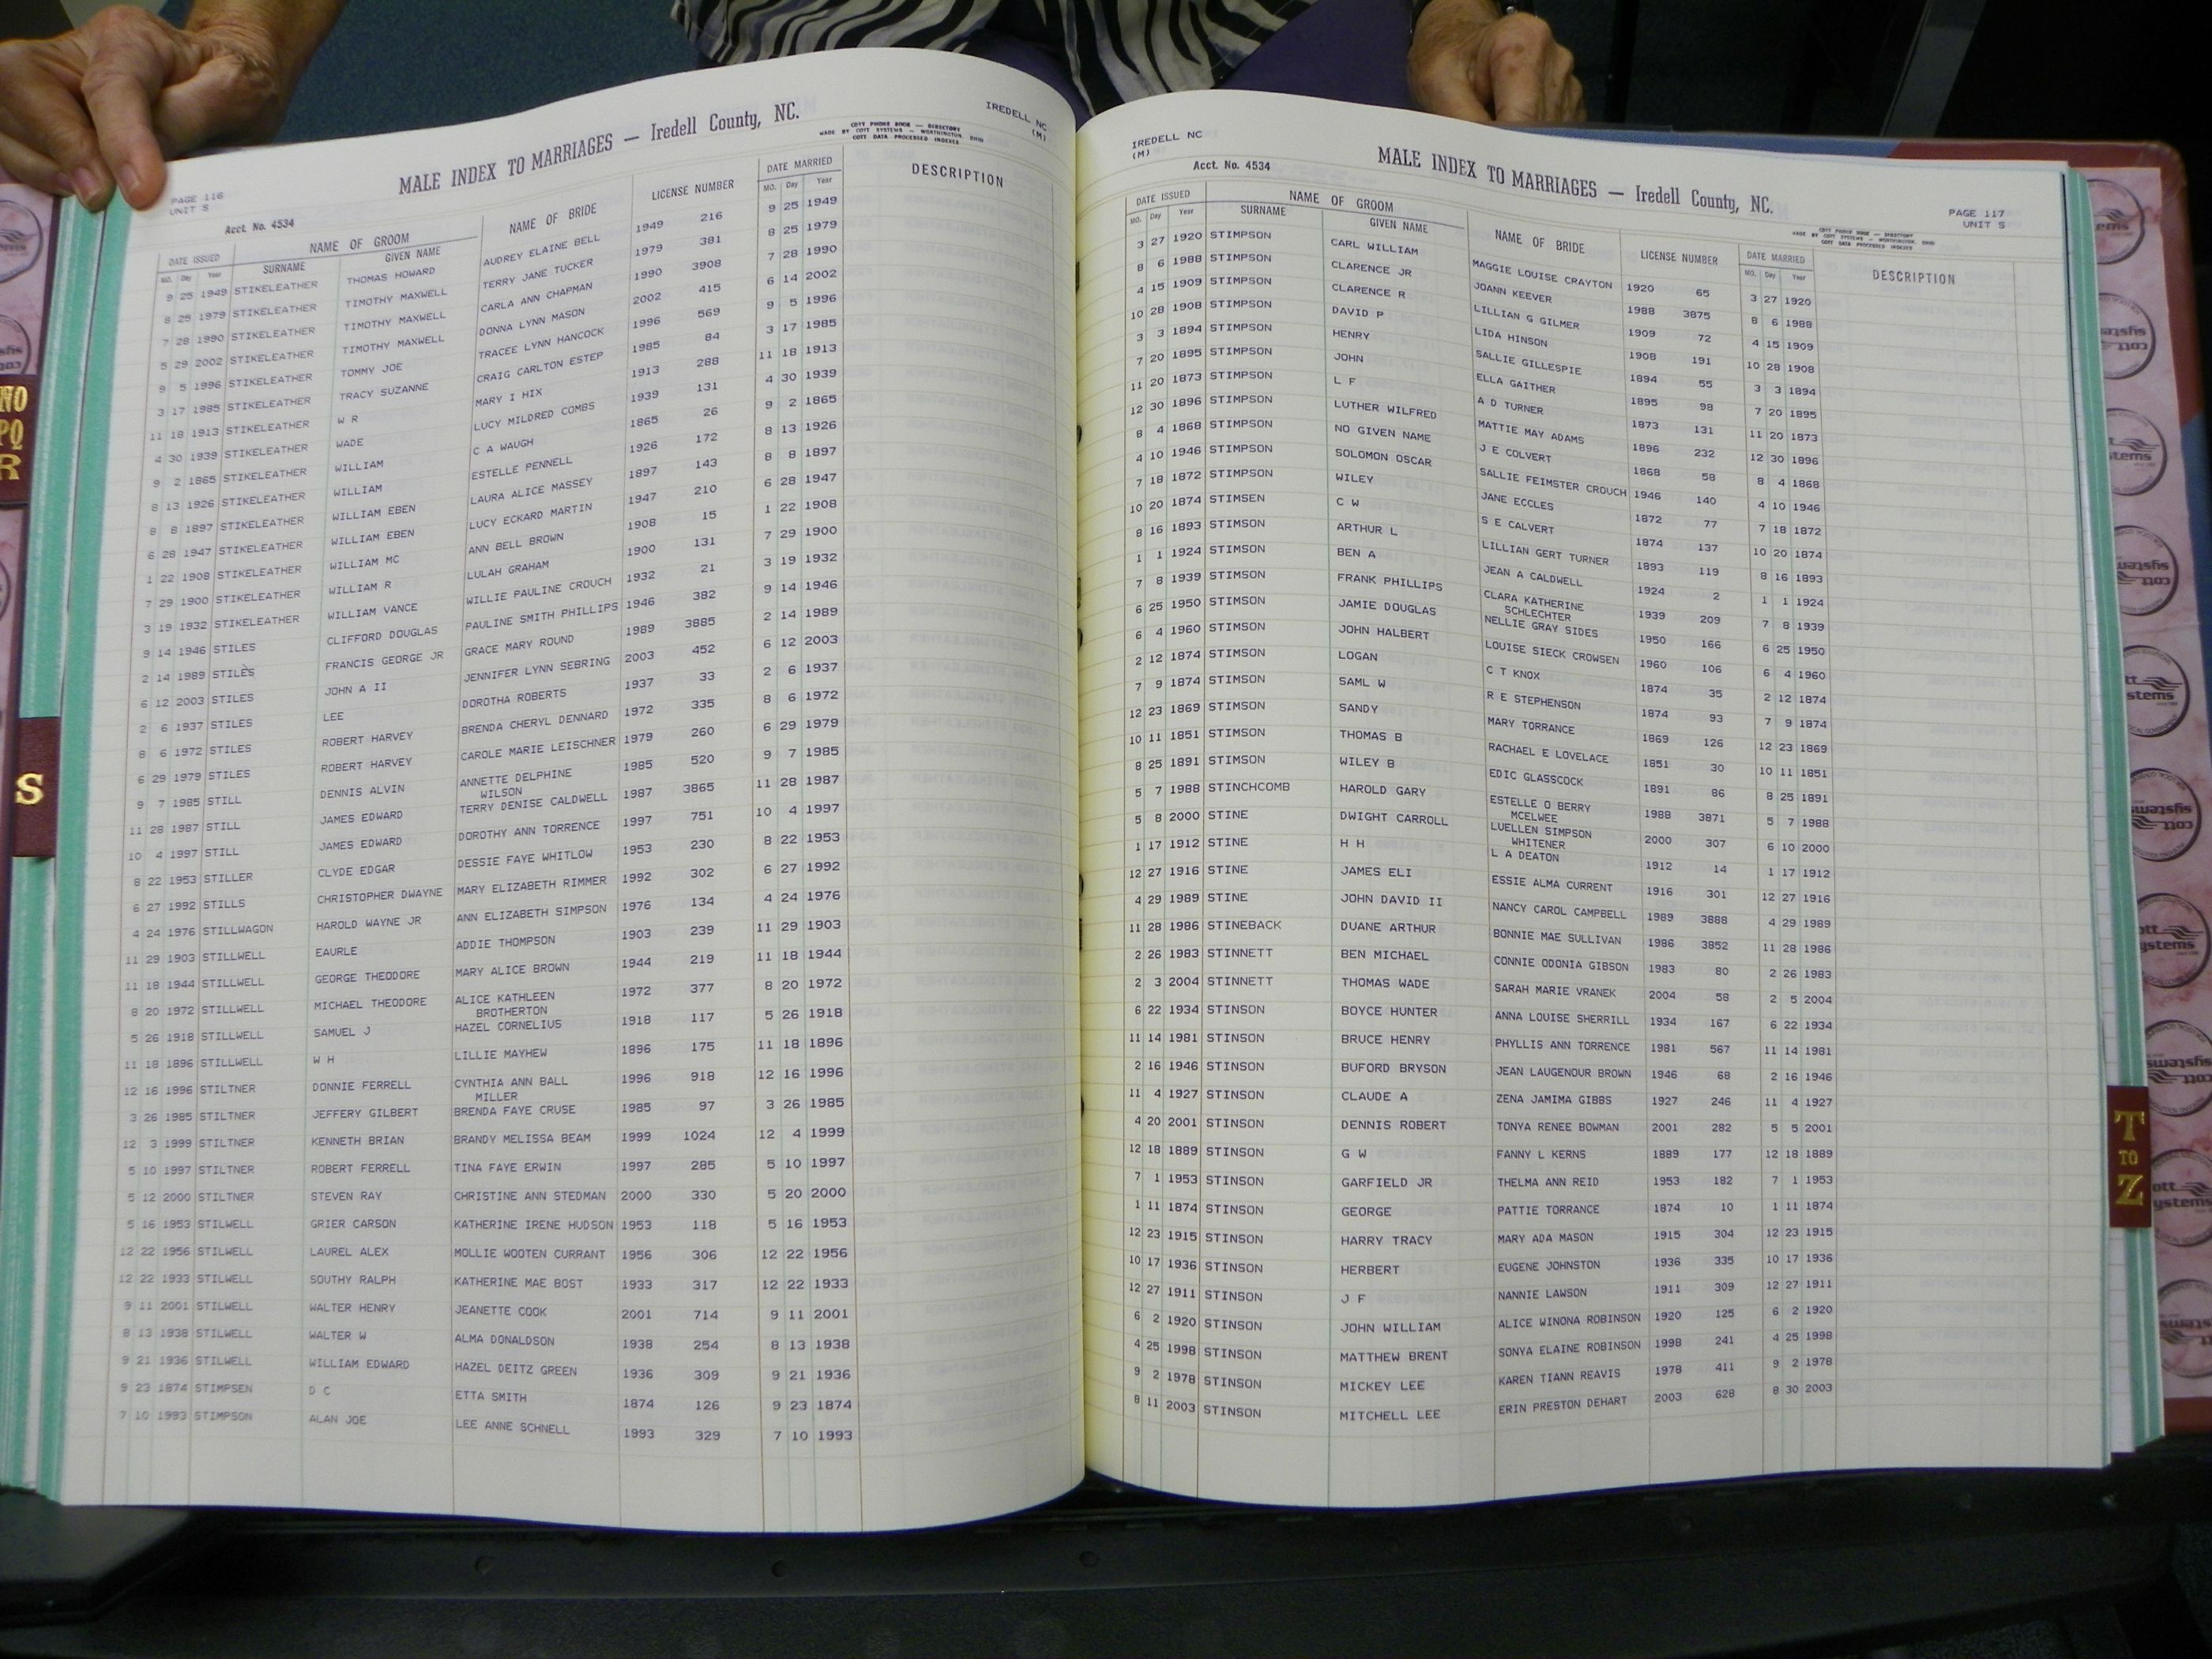 PAGE 116
UNIT S
Acct. No. 4534
MALE INDEX TO MARRIAGES — Iredell County, NC.
COTT PHONE BOOK — DIRECTORY
MADE BY COTT SYSTEMS — WORTHINGTON, OHIO
COTT DATA PROCESSED INDEXES
IREDELL NC
(M)
DATE ISSUED NAME OF GROOM NAME OF BRIDE LICENSE NUMBER DATE MARRIED DESCRIPTION
MO. Day Year SURNAME GIVEN NAME MO. Day Year
9 25 1949 STIKELEATHER THOMAS HOWARD AUDREY ELAINE BELL 1949 216 9 25 1949
8 25 1979 STIKELEATHER TIMOTHY MAXWELL TERRY JANE TUCKER 1979 381 8 25 1979
7 28 1990 STIKELEATHER TIMOTHY MAXWELL CARLA ANN CHAPMAN 1990 3908 7 28 1990
5 29 2002 STIKELEATHER TIMOTHY MAXWELL DONNA LYNN MASON 2002 415 6 14 2002
9 5 1996 STIKELEATHER TOMMY JOE TRACEE LYNN HANCOCK 1996 569 9 5 1996
3 17 1985 STIKELEATHER TRACY SUZANNE CRAIG CARLTON ESTEP 1985 84 3 17 1985
11 18 1913 STIKELEATHER W R MARY I HIX 1913 288 11 18 1913
4 30 1939 STIKELEATHER WADE LUCY MILDRED COMBS 1939 131 4 30 1939
9 2 1865 STIKELEATHER WILLIAM C A WAUGH 1865 26 9 2 1865
8 13 1926 STIKELEATHER WILLIAM ESTELLE PENNELL 1926 172 8 13 1926
8 8 1897 STIKELEATHER WILLIAM EBEN LAURA ALICE MASSEY 1897 143 8 8 1897
6 28 1947 STIKELEATHER WILLIAM EBEN LUCY ECKARD MARTIN 1947 210 6 28 1947
1 22 1908 STIKELEATHER WILLIAM MC ANN BELL BROWN 1908 15 1 22 1908
7 29 1900 STIKELEATHER WILLIAM R LULAH GRAHAM 1900 131 7 29 1900
3 19 1932 STIKELEATHER WILLIAM VANCE WILLIE PAULINE CROUCH 1932 21 3 19 1932
9 14 1946 STILES CLIFFORD DOUGLAS PAULINE SMITH PHILLIPS 1946 382 9 14 1946
2 14 1989 STILES FRANCIS GEORGE JR GRACE MARY ROUND 1989 3885 2 14 1989
6 12 2003 STILES JOHN A II JENNIFER LYNN SEBRING 2003 452 6 12 2003
2 6 1937 STILES LEE DOROTHA ROBERTS 1937 33 2 6 1937
8 6 1972 STILES ROBERT HARVEY BRENDA CHERYL DENNARD 1972 335 8 6 1972
6 29 1979 STILES ROBERT HARVEY CAROLE MARIE LEISCHNER 1979 260 6 29 1979
9 7 1985 STILL DENNIS ALVIN ANNETTE DELPHINE 1985 520 9 7 1985
WILSON
11 28 1987 STILL JAMES EDWARD TERRY DENISE CALDWELL 1987 3865 11 28 1987
10 4 1997 STILL JAMES EDWARD DOROTHY ANN TORRENCE 1997 751 10 4 1997
8 22 1953 STILLER CLYDE EDGAR DESSIE FAYE WHITLOW 1953 230 8 22 1953
6 27 1992 STILLS CHRISTOPHER DWAYNE MARY ELIZABETH RIMMER 1992 302 6 27 1992
4 24 1976 STILLWAGON HAROLD WAYNE JR ANN ELIZABETH SIMPSON 1976 134 4 24 1976
11 29 1903 STILLWELL EAURLE ADDIE THOMPSON 1903 239 11 29 1903
11 18 1944 STILLWELL GEORGE THEODORE MARY ALICE BROWN 1944 219 11 18 1944
8 20 1972 STILLWELL MICHAEL THEODORE ALICE KATHLEEN 1972 377 8 20 1972
BROTHERTON
5 26 1918 STILLWELL SAMUEL J HAZEL CORNELIUS 1918 117 5 26 1918
11 18 1896 STILLWELL W H LILLIE MAYHEW 1896 175 11 18 1896
12 16 1996 STILTNER DONNIE FERRELL CYNTHIA ANN BALL 1996 918 12 16 1996
MILLER
3 26 1985 STILTNER JEFFERY GILBERT BRENDA FAYE CRUSE 1985 97 3 26 1985
12 3 1999 STILTNER KENNETH BRIAN BRANDY MELISSA BEAM 1999 1024 12 4 1999
5 10 1997 STILTNER ROBERT FERRELL TINA FAYE ERWIN 1997 285 5 10 1997
5 12 2000 STILTNER STEVEN RAY CHRISTINE ANN STEDMAN 2000 330 5 20 2000
5 16 1953 STILWELL GRIER CARSON KATHERINE IRENE HUDSON 1953 118 5 16 1953
12 22 1956 STILWELL LAUREL ALEX MOLLIE WOOTEN CURRANT 1956 306 12 22 1956
12 22 1933 STILWELL SOUTHY RALPH KATHERINE MAE BOST 1933 317 12 22 1933
9 11 2001 STILWELL WALTER HENRY JEANETTE COOK 2001 714 9 11 2001
8 13 1938 STILWELL WALTER W ALMA DONALDSON 1938 254 8 13 1938
9 21 1936 STILWELL WILLIAM EDWARD HAZEL DEITZ GREEN 1936 309 9 21 1936
9 23 1874 STIMPSEN D C ETTA SMITH 1874 126 9 23 1874
7 10 1993 STIMPSON ALAN JOE LEE ANNE SCHNELL 1993 329 7 10 1993
IREDELL NC
(M)
Acct. No. 4534
MALE INDEX TO MARRIAGES — Iredell County, NC.
COTT PHONE BOOK — DIRECTORY
MADE BY COTT SYSTEMS — WORTHINGTON, OHIO
COTT DATA PROCESSED INDEXES
PAGE 117
UNIT S
DATE ISSUED NAME OF GROOM NAME OF BRIDE LICENSE NUMBER DATE MARRIED DESCRIPTION
MO. Day Year SURNAME GIVEN NAME MO. Day Year
3 27 1920 STIMPSON CARL WILLIAM MAGGIE LOUISE CRAYTON 1920 65 3 27 1920
8 6 1988 STIMPSON CLARENCE JR JOANN KEEVER 1988 3875 8 6 1988
4 15 1909 STIMPSON CLARENCE R LILLIAN G GILMER 1909 72 4 15 1909
10 28 1908 STIMPSON DAVID P LIDA HINSON 1908 191 10 28 1908
3 3 1894 STIMPSON HENRY SALLIE GILLESPIE 1894 55 3 3 1894
7 20 1895 STIMPSON JOHN ELLA GAITHER 1895 98 7 20 1895
11 20 1873 STIMPSON L F A D TURNER 1873 131 11 20 1873
12 30 1896 STIMPSON LUTHER WILFRED MATTIE MAY ADAMS 1896 232 12 30 1896
8 4 1868 STIMPSON NO GIVEN NAME J E COLVERT 1868 58 8 4 1868
4 10 1946 STIMPSON SOLOMON OSCAR SALLIE FEIMSTER CROUCH 1946 140 4 10 1946
7 18 1872 STIMPSON WILEY JANE ECCLES 1872 77 7 18 1872
10 20 1874 STIMSEN C W S E CALVERT 1874 137 10 20 1874
8 16 1893 STIMSON ARTHUR L LILLIAN GERT TURNER 1893 119 8 16 1893
1 1 1924 STIMSON BEN A JEAN A CALDWELL 1924 2 1 1 1924
7 8 1939 STIMSON FRANK PHILLIPS CLARA KATHERINE 1939 209 7 8 1939
SCHLECHTER
6 25 1950 STIMSON JAMIE DOUGLAS NELLIE GRAY SIDES 1950 166 6 25 1950
6 4 1960 STIMSON JOHN HALBERT LOUISE SIECK CROWSEN 1960 106 6 4 1960
2 12 1874 STIMSON LOGAN C T KNOX 1874 35 2 12 1874
7 9 1874 STIMSON SAML W R E STEPHENSON 1874 93 7 9 1874
12 23 1869 STIMSON SANDY MARY TORRANCE 1869 126 12 23 1869
10 11 1851 STIMSON THOMAS B RACHAEL E LOVELACE 1851 30 10 11 1851
8 25 1891 STIMSON WILEY B EDIC GLASSCOCK 1891 86 8 25 1891
5 7 1988 STINCHCOMB HAROLD GARY ESTELLE O BERRY 1988 3871 5 7 1988
MCELWEE
5 8 2000 STINE DWIGHT CARROLL LUELLEN SIMPSON 2000 307 6 10 2000
WHITENER
1 17 1912 STINE H H L A DEATON 1912 14 1 17 1912
12 27 1916 STINE JAMES ELI ESSIE ALMA CURRENT 1916 301 12 27 1916
4 29 1989 STINE JOHN DAVID II NANCY CAROL CAMPBELL 1989 3888 4 29 1989
11 28 1986 STINEBACK DUANE ARTHUR BONNIE MAE SULLIVAN 1986 3852 11 28 1986
2 26 1983 STINNETT BEN MICHAEL CONNIE ODONIA GIBSON 1983 80 2 26 1983
2 3 2004 STINNETT THOMAS WADE SARAH MARIE VRANEK 2004 58 2 5 2004
6 22 1934 STINSON BOYCE HUNTER ANNA LOUISE SHERRILL 1934 167 6 22 1934
11 14 1981 STINSON BRUCE HENRY PHYLLIS ANN TORRENCE 1981 567 11 14 1981
2 16 1946 STINSON BUFORD BRYSON JEAN LAUGENOUR BROWN 1946 68 2 16 1946
11 4 1927 STINSON CLAUDE A ZENA JAMIMA GIBBS 1927 246 11 4 1927
4 20 2001 STINSON DENNIS ROBERT TONYA RENEE BOWMAN 2001 282 5 5 2001
12 18 1889 STINSON G W FANNY L KERNS 1889 177 12 18 1889
7 1 1953 STINSON GARFIELD JR THELMA ANN REID 1953 182 7 1 1953
1 11 1874 STINSON GEORGE PATTIE TORRANCE 1874 10 1 11 1874
12 23 1915 STINSON HARRY TRACY MARY ADA MASON 1915 304 12 23 1915
10 17 1936 STINSON HERBERT EUGENE JOHNSTON 1936 335 10 17 1936
12 27 1911 STINSON J F NANNIE LAWSON 1911 309 12 27 1911
6 2 1920 STINSON JOHN WILLIAM ALICE WINONA ROBINSON 1920 125 6 2 1920
4 25 1998 STINSON MATTHEW BRENT SONYA ELAINE ROBINSON 1998 241 4 25 1998
9 2 1978 STINSON MICKEY LEE KAREN TIANN REAVIS 1978 411 9 2 1978
8 11 2003 STINSON MITCHELL LEE ERIN PRESTON DEHART 2003 628 8 30 2003
NO
PQ
R
S
T
TO
Z